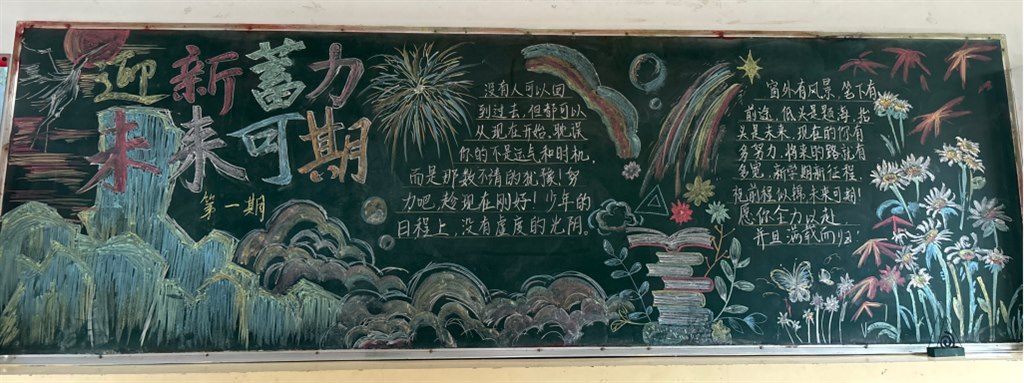 迎新蓄力
未来可期
第一期
没有人可以回
到过去,但都可以
从现在开始,耽误
你的不是运气和时机,
而是那数不清的犹豫!努
力吧,趁现在刚好!少年的
日程上,没有虚度的光阴。
窗外有风景,笔下有
前途,低头是题海,抬
头是未来,现在的你有
多努力,将来的路就有
多宽,新学期新征程,
祝前程似锦,未来可期!
愿你全力以赴
并且满载而归